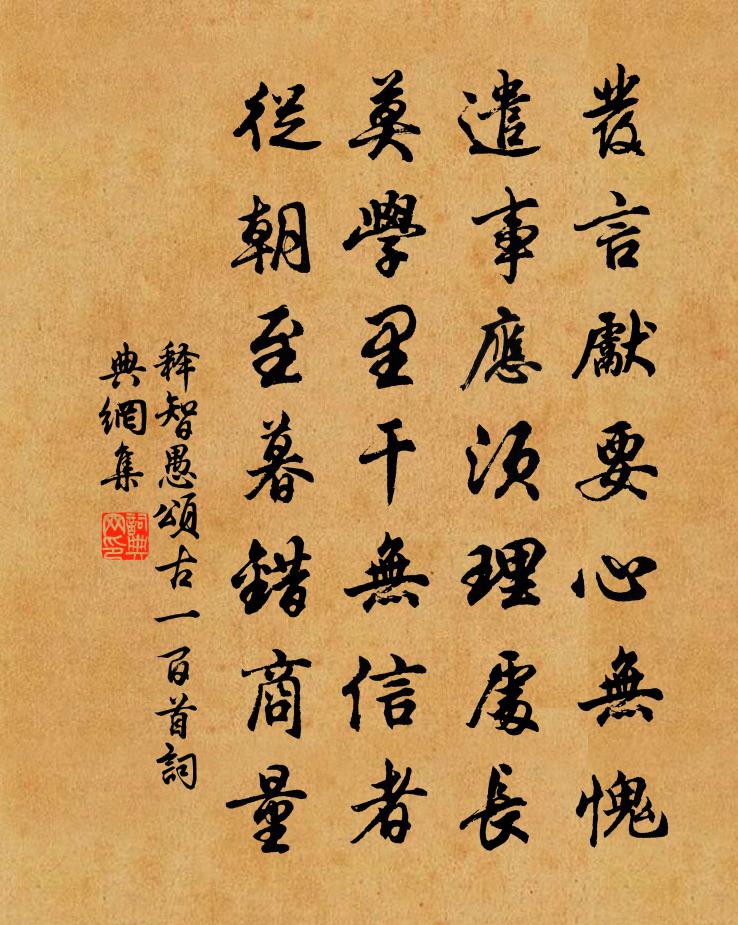 發言獻要心無愧
遣事應須理處長
莫學里干無信者
從朝至暮錯商量
释智愚頌古一百首詞
典網集
詞典
网印